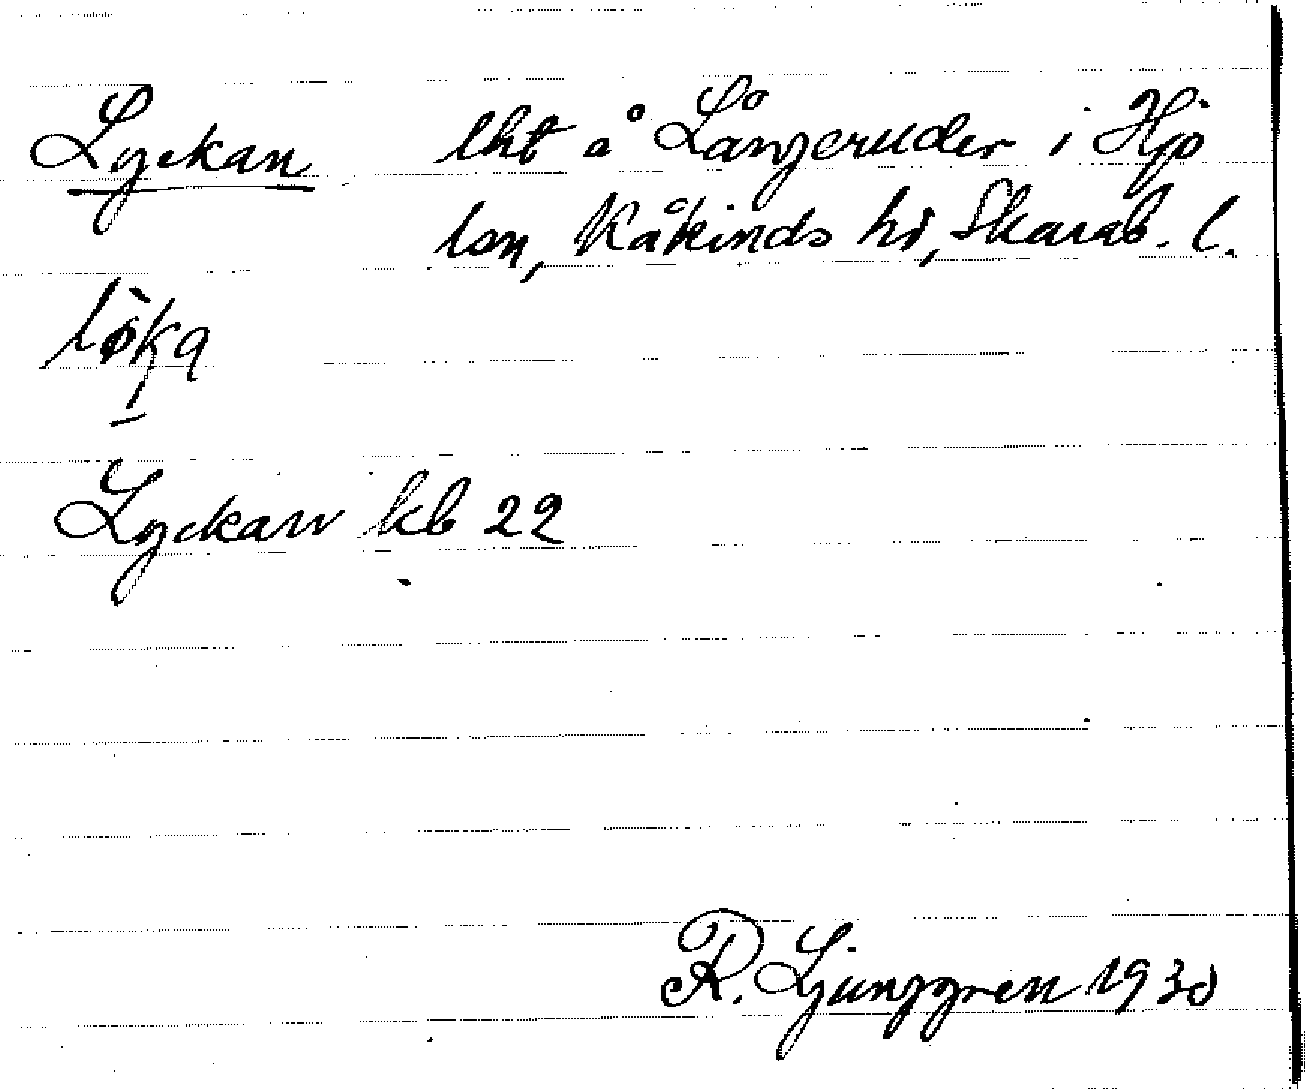 Lyckan lht å Långeruder i Hjo
lsn, Kåkinds hd, Skarab. l.
Lyckan kb 22
R. Ljunggren 1930